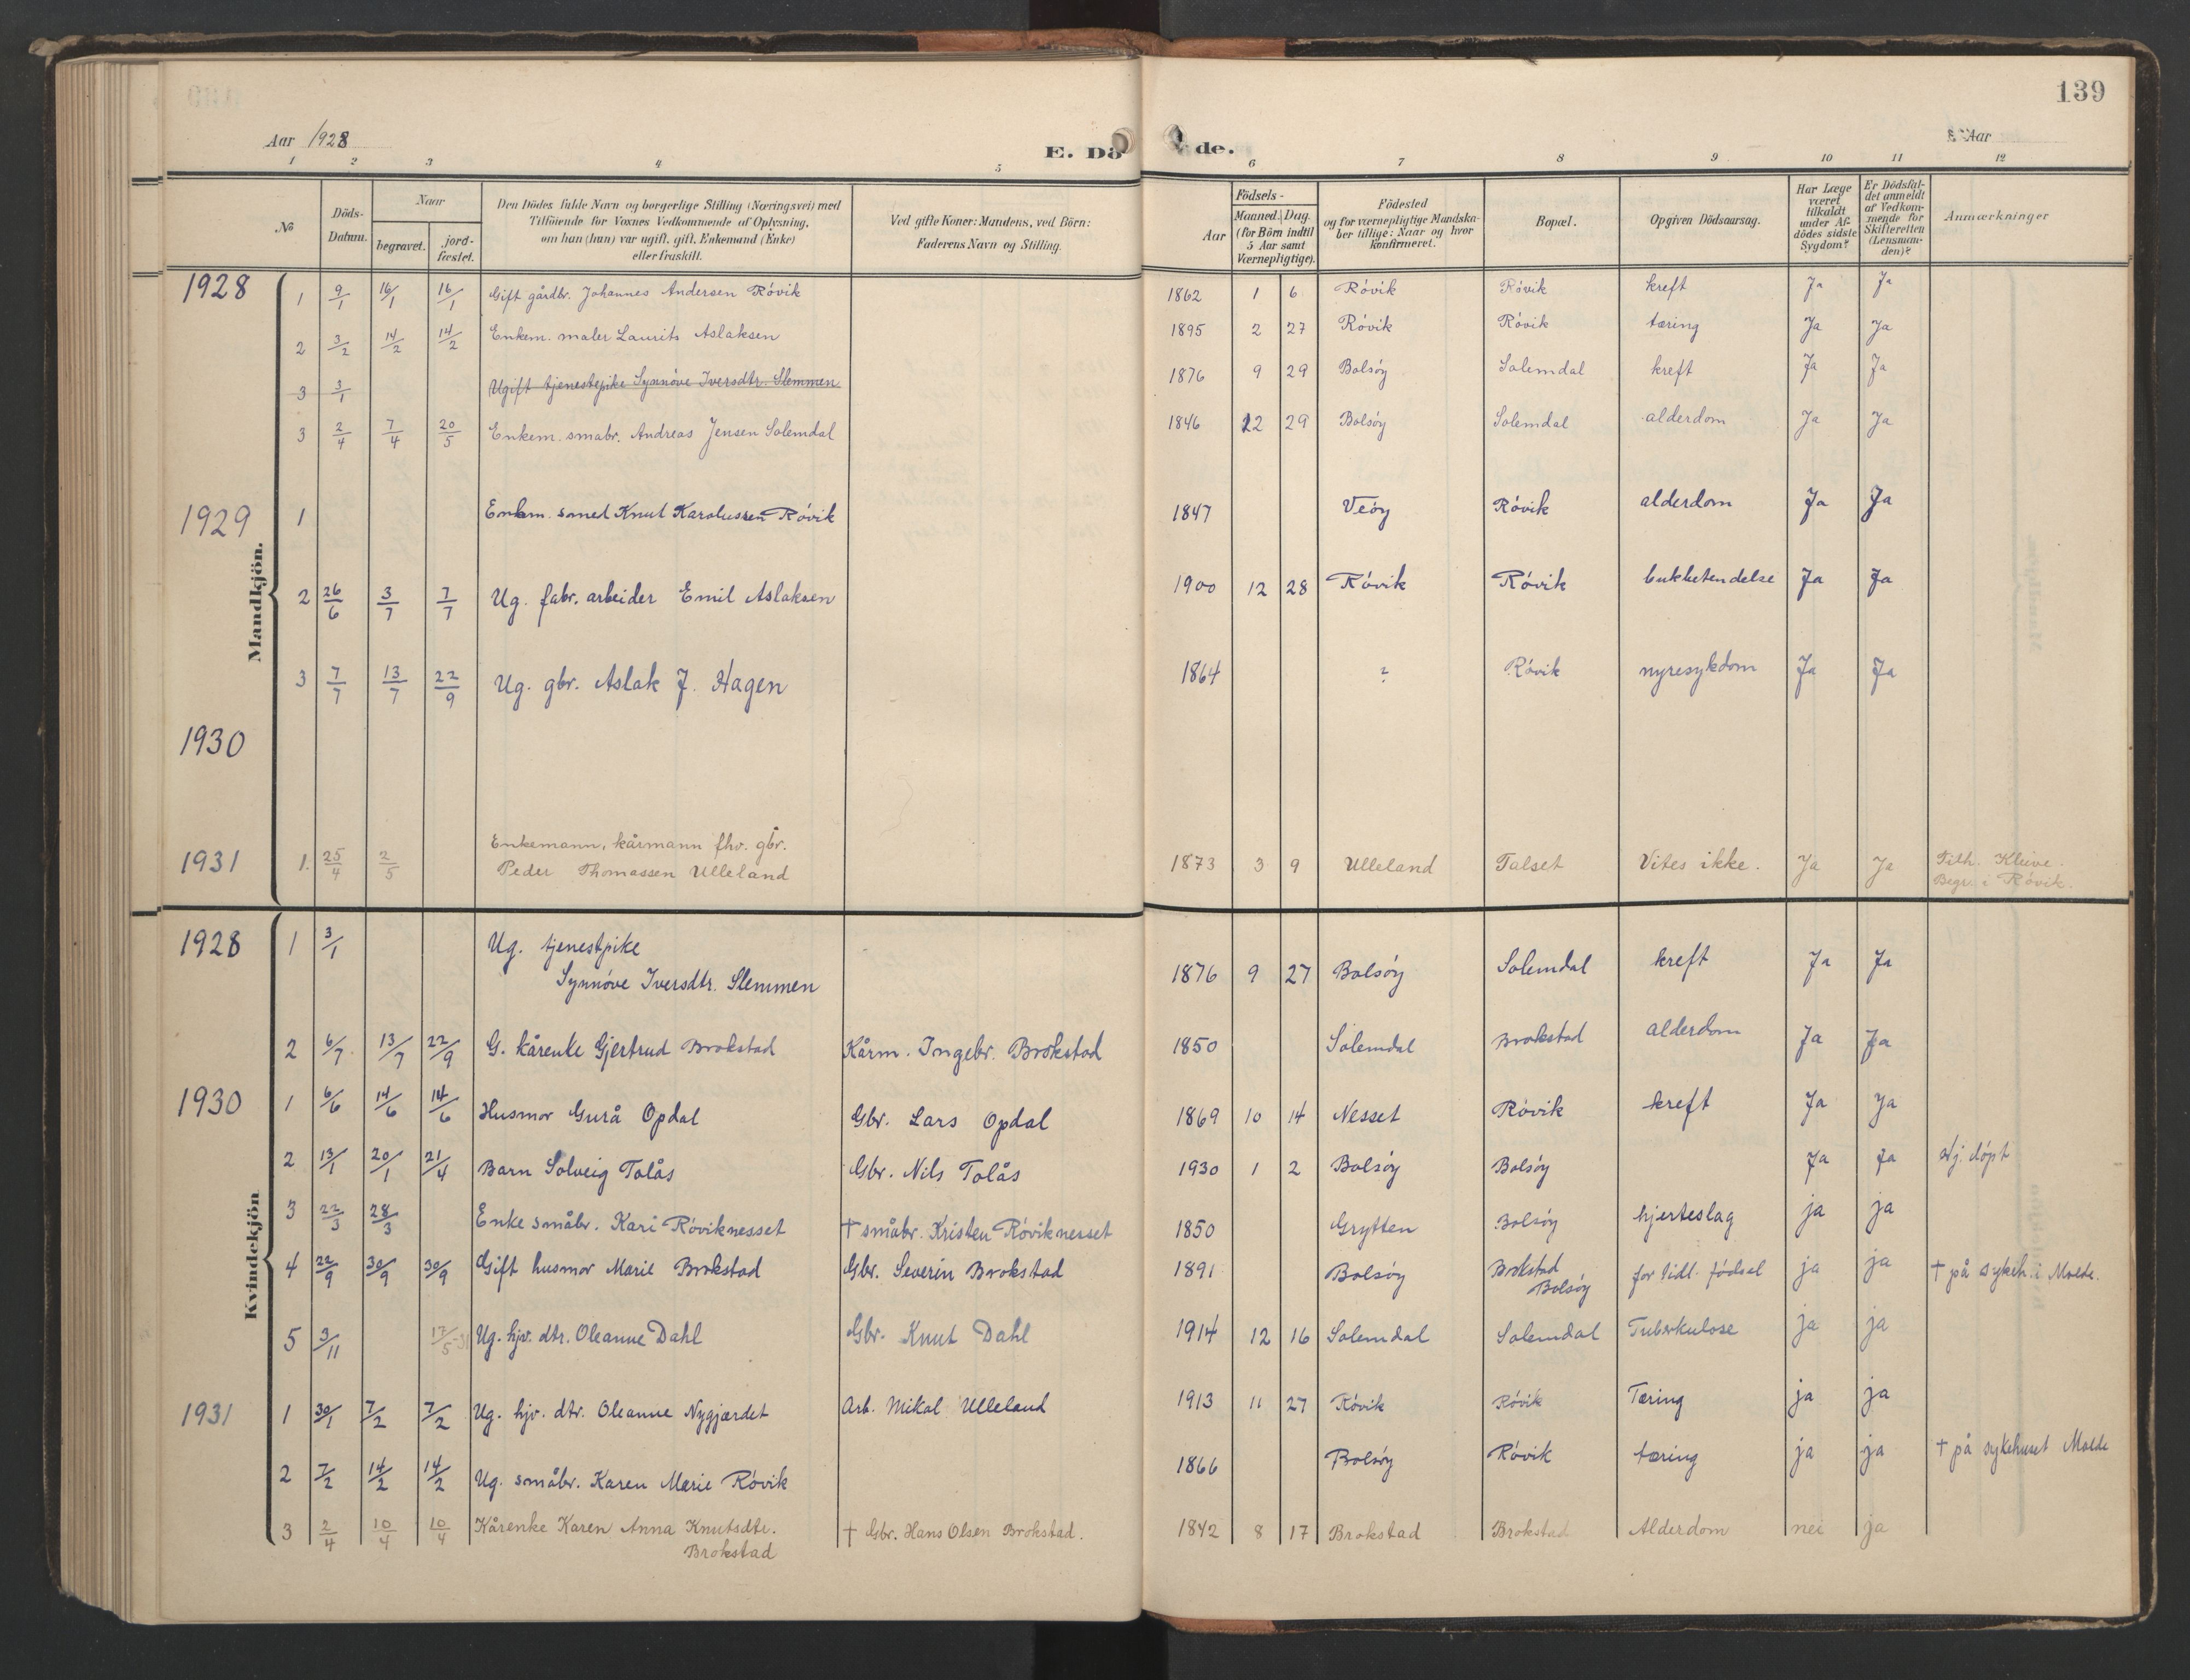 139
Aar 1928
E. Dö de.
Aar
1 2 3 4 5 6 7 8 9 10 11 12
No
Döds-Datum.
Naar
begravet.
jord-fæstet.
Den Dödes fulde Navn og borgerlige Stilling (Næringsvei) med
Tilföiende for Voxnes Vedkommende af Oplysning,
om han (hun) var ugift, gift, Enkemand (Enke)
eller fraskilt.
Ved gifte Koner: Mandens, ved Börn:
Faderens Navn og Stilling.
Födsels-
Aar
Maaned. Dag.
(for Börn indtil
5 Aar samt
Værnepligtige).
Födested
og for værnepligtige Mandska-
ber tillige: Naar og hvor
konfirmeret.
Bopæl.
Opgiven Dödsaarsag.
Har Læge
været
tilkaldt
under Af-
dödes sidste
Sygdom?
Er Dödsfal-
det anmeldt
af Vedkom-
mende for
Skifteretten
(Lensman-
den)?
Anmærkninger
Mandkjön.
1928 1 9/1 16/1 16/1 Gift gårdbr. Johannes Andersen Róvik 1862 1 6 Róvik Róvik kreft Ja Ja
2 3/2 14/2 14/2 Enkem. maler Laurits Aslaksen 1895 2 27 Róvik Róvik tæring Ja Ja
3 3/1 Ugift tjenestepike Synnóve Iversdtr. Slemmen 1876 9 29 Bolsóy Solemdal kreft Ja Ja
3 2/4 7/4 20/5 Enkem. smabr. Andreas Jensen Solemdal 1846 12 29 Bolsóy Solemdal alderdom Ja Ja
1929 1 Enkem. smed Knut Karolussen Róvik 1847 Veóy Róvik alderdom Ja Ja
2 26/6 3/7 7/7 Ug. fabr. arbeider Emil Aslaksen 1900 12 28 Róvik Róvik bukbetendelse Ja Ja
3 7/7 13/7 22/9 Ug. gbr. Aslak J. Hagen 1864 ? Róvik nyresykdom Ja Ja
1930
1931 1. 25/4 2/5 Enkemann, kårmann fhv. gbr.
Peder Thomassen Ulleland 1873 3 9 Ulleland Talset Vites ikke. Ja Ja Tilh. Kleive.
Begr. i Róvik.
Kvindekjön
1928 1 3/1 Ug. tjenestpike
Synnóve Iversdtr. Slemmen 1876 9 27 Bolsóy Solemdal kreft Ja Ja
2 6/7 13/7 22/9 G. kårenke Gjertrud Brokstad Kårm. Ingebr. Brokstad 1850 Solemdal Brokstad alderdom Ja Ja
1930 1 6/6 14/6 14/6 Husmor Gurå Opdal Gbr. Lars Opdal 1869 10 14 Nesset Róvik kreft Ja Ja
2 13/1 20/1 21/4 Barn Solveig Tolås Gbr. Nils Tolås 1930 1 2 Bolsóy Bolsóy Ja Ja hj. dópt
3 22/3 28/3 Enke småbr. Kari Róviknesset † småbr. Kristen Róviknesset 1850 Grytten Bolsóy hjerteslag ja ja
4 22/9 30/9 30/9 Gift husmor Marie Brokstad Gbr. Severin Brokstad 1891 Bolsóy Brokstad
Bolsóy for tidl. fódsel ja ja † på sykeh. i Molde.
5 3/11 17/5-31 Ug. hjv. dtr. Oleanne Dahl Gbr. Knut Dahl 1914 12 16 Solemdal Solemdal Tuberkulose ja ja
1931 1 30/1 7/2 7/2 Ug. hjv. dtr. Oleanne Nygjærdet Arb. Mikal Ulleland 1913 11 27 Róvik Róvik Tæring ja ja
2 7/2 14/2 14/2 Ug. småbr. Karen Marie Róvik 1866 Bolsóy Róvik tæring ja ja † på sykehuset Molde
3 2/4 10/4 10/4 Kårenke Karen Anna Knutsdtr.
Brokstad † Gbr. Hans Olsen Brokstad. 1842 8 17 Brokstad Brokstad Alderdom nei ja